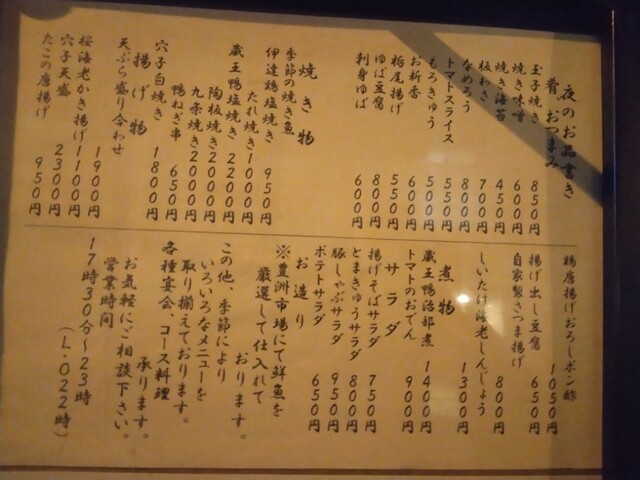 夜のお品書き
肴 おつまみ
玉子焼き 850円
焼き味噌 600円
焼き海苔 450円
板わさ 700円
なめろう 800円
トマトスライス 550円
もろきゅう 500円
お新香 600円
栃尾揚げ 550円
ゆば豆腐 800円
刺身ゆば 600円
焼き物
季節の焼き魚
伊達鶏塩焼き 950円
たれ焼き 1000円
蔵王鴨塩焼き 2200円
陶板焼き 2000円
九条焼き 2000円
鴨ねぎ串 650円
穴子白焼き 1800円
揚げ物
天ぷら盛り合わせ 1900円
桜海老かき揚げ 1100円
穴子天盛 2300円
たこの唐揚げ 950円
鶏唐揚げおろしポン酢 1050円
揚げ出し豆腐 650円
自家製さつま揚げ 800円
しいたけ海老しんじょう 1300円
煮物
蔵王鴨治部煮 1400円
トマトのおでん 900円
サラダ
揚げそばサラダ 750円
とまきゅうサラダ 800円
豚しゃぶサラダ 950円
ポテトサラダ 650円
お造り
※豊洲市場にて鮮魚を
厳選して仕入れて
おります。
この他、季節により
いろいろなメニューを
取り揃えております。
各種宴会、コース料理
承ります。
お気軽にご相談下さい。
営業時間
17時30分〜23時
(L・O22時)